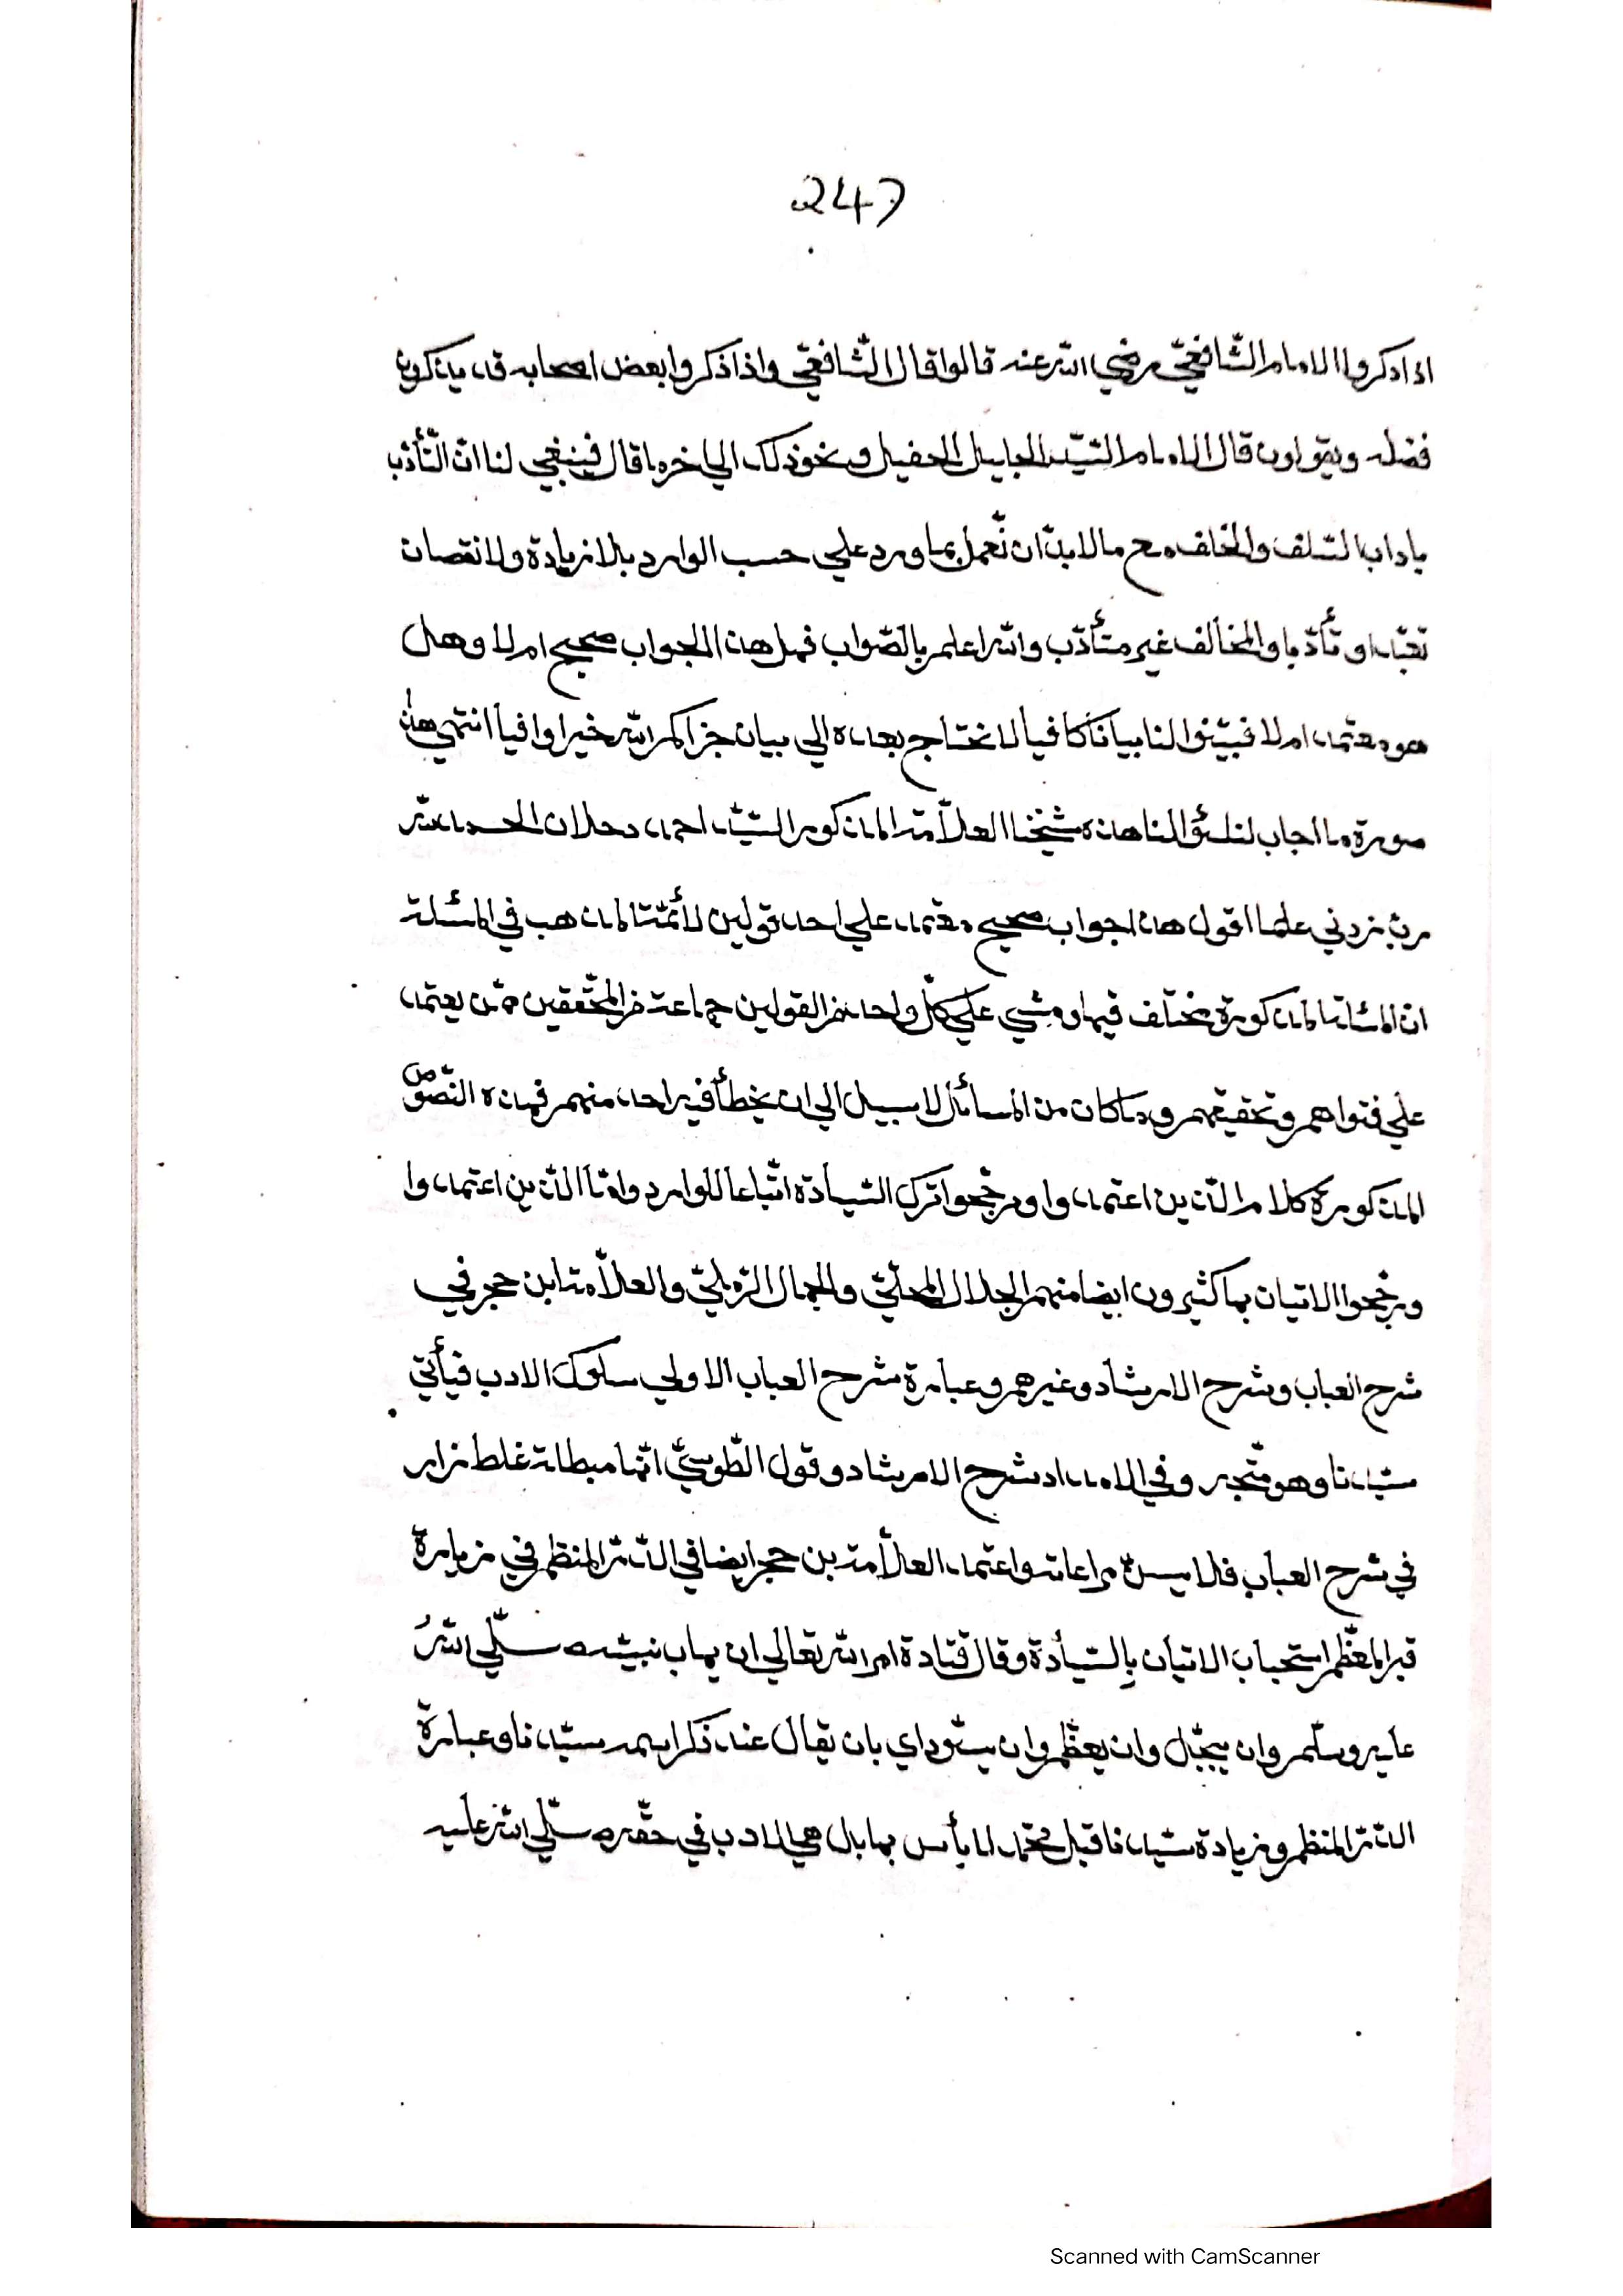 247
اذا ذكروا الامام الشّافعيّ رضي الله عنه قالوا قال الشّافعيّ واذا ذكروا بعض اصحابه قد يذكرون
فضله ويقولون قال الامام السّيّد الجليل الحفيل ونحو ذلك الي اخره ما قال فينبغي لنا انّ التّأدّب
باداب السّلف والخلف مع ما لا بدّ ان نّعمل بما ورد علي حسب الوارد بلا زيادة ولا نقصان
تعبّدا وتأدّبا والمخالف غير متأدّب والله اعلم بالصّواب فهل هذا الجواب صحيح ام لا وهل
هو معتمد ام لا فبيّنوا لنا بيانا كافيا لا نحتاج بعده الي بيان جزاكم الله خيرا وافيا انتهي هذه
صورة ما اجاب لنا لسؤالنا هذه شيخنا العلّامة المذكور السّيّد احمد دحلان الحمد لله
ربّ زدني علما اقول هذا جواب صحيح معتمد علي احد قولين لأئمّة المذهب في المسئلة
انّ المسئلة المذكورة مختلف فيها ومشي علي كلّ واحد من القولين جماعة من المحقّقين ممّن يعتمد
علي فتواهم وتحقيقهم وما كان من المسائل لا سبيل الي ان يخطأ فيه احد منهم فهذه النّصوص
المذكورة كلام الّذين اعتمدوا ورجّحوا ترك السّيادة اتّباعا للوارد وامّا الّذين اعتمدوا
ورجّحوا الاتيان بها كثيرون ايضا منهم الجلال المحلّيّ والجمال الرّمليّ والعلّامة ابن حجر في
شرح العباب وشرح الارشاد وغيرهم وعبارة شرح العباب الاولي سلوك الادب فيأتي
سيّدنا وهو متّجه وفي الامداد شرح الارشاد وقول الطّوسيّ انّها مبطلة غلط زاد
في شرح العباب فلا يسنّ مراعاته واعتمد العلّامة بن حجر ايضا في الدّرّ المنظم في زيارة
قبر المعظّم استحباب الاتيان بالسّيادة وقال قتادة امر الله تعالي ان يهاب نبيّه صلّي اللهُ
عليه وسلّم وان يبجّل وان يعظّم وان يسوّد اي بان يقال عند ذكر اسمه سيّدنا وعبارة
الدّرّ المنظم وزيادة سيّدنا قبل محمّد لا بأس بها بل هي الادب في حقّه صلّي الله عليه
Scanned with CamScanner